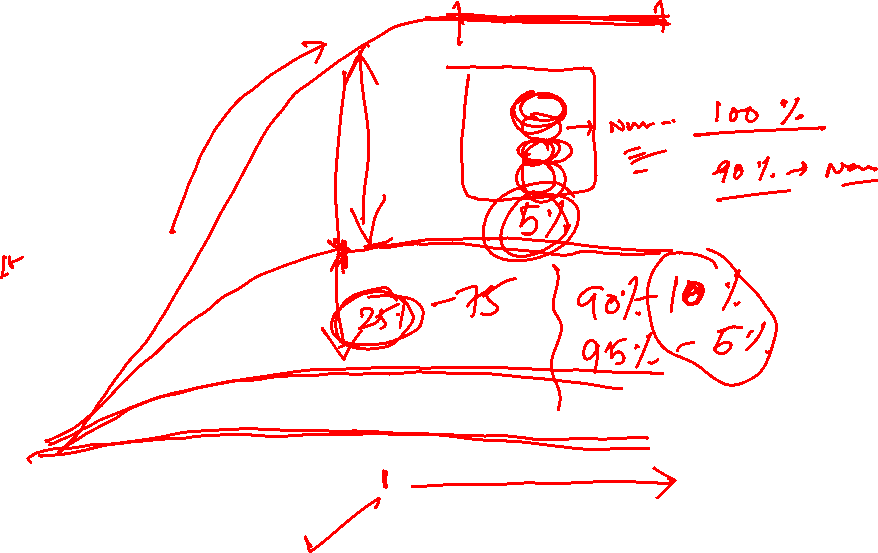 100 %
90 % →
5%
25% - 75
90% - 10 %
95% - 5%
1